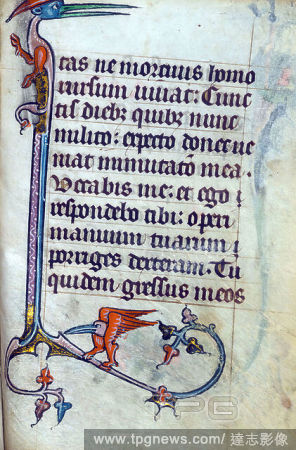 tas ne mortuus homo
rursum uiuat: Cunc
tis dieb; quib; nunc
milito: expecto donec ue
niat inmutatō mea.
Vocabis me: et ego
respondebo tibi: operi
manuum tuarum
porriges dexteram. Tu
quidem gressus meos
TPG
www.tpgnews.com/ 達志影像